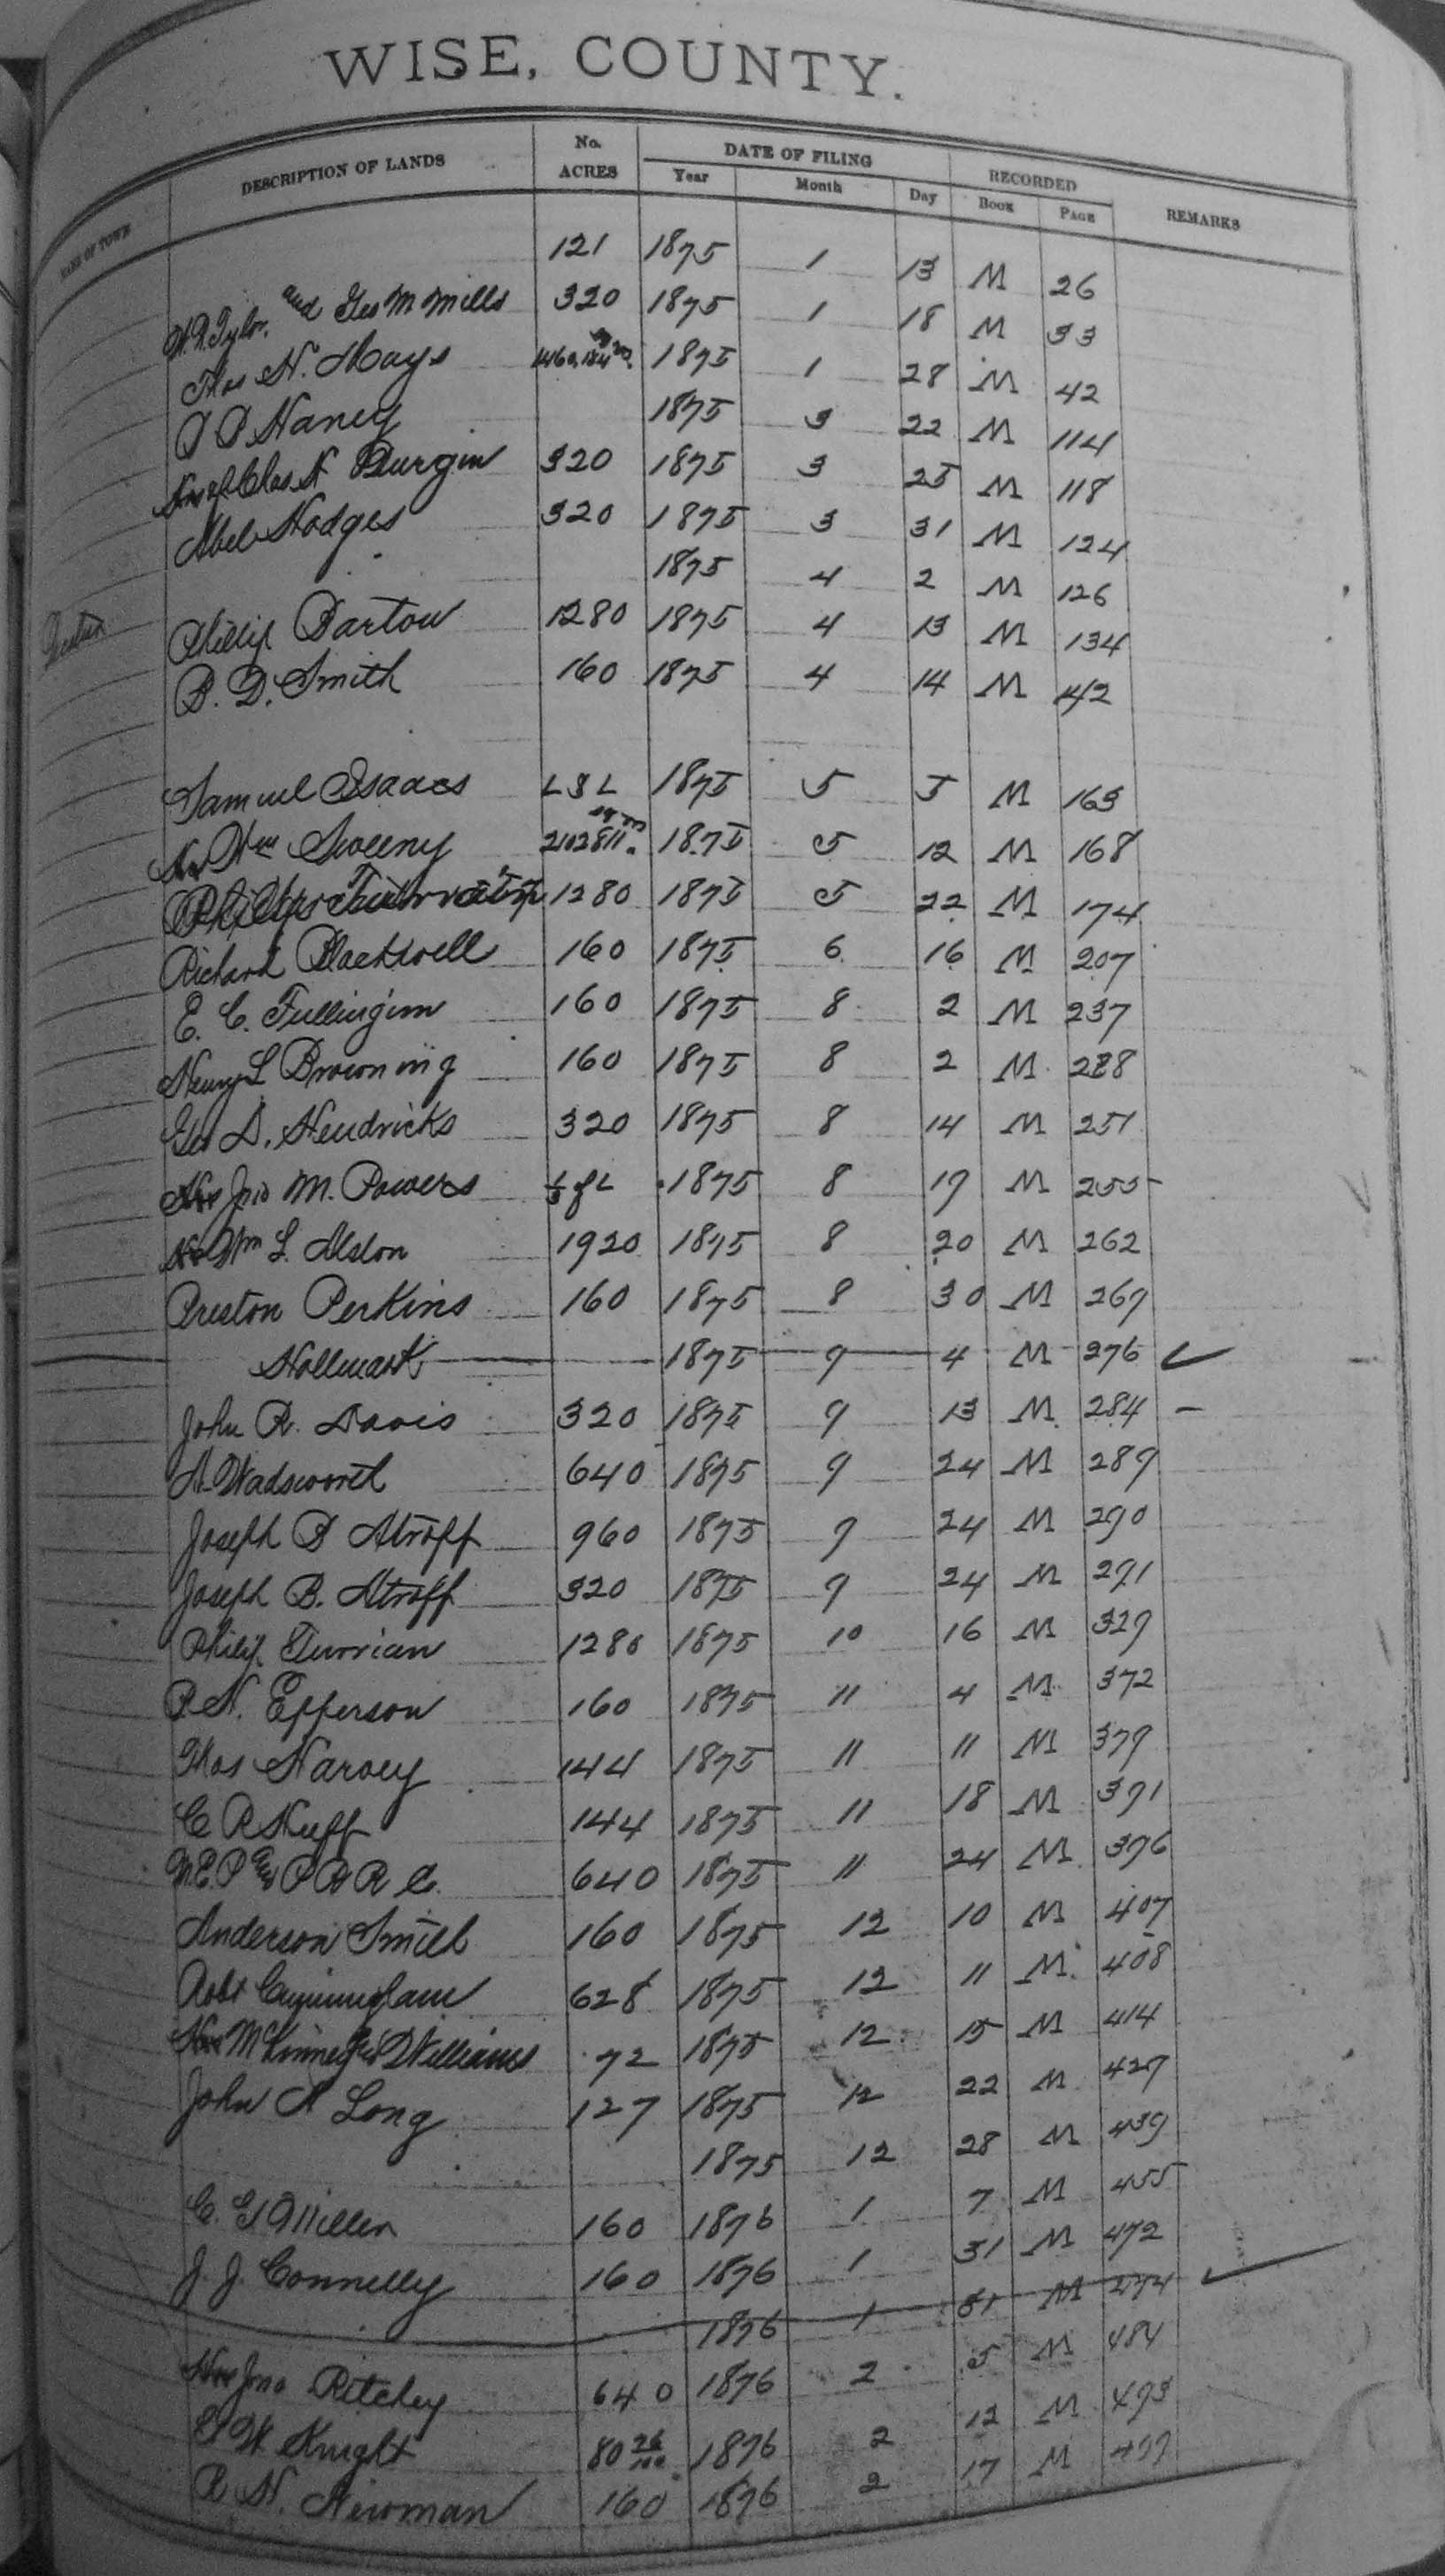 WISE, COUNTY.
NAME OF TOWN DESCRIPTION OF LANDS No. ACRES DATE OF FILING Year Month Day RECORDED BOOK PAGE REMARKS
121 1875 1 13 M 26
and Geo M Mills 320 1875 1 18 M 33
Thos N. Mays 1875 1 28 M 42
Haney 1875 3 22 M 114
Chas N Burgin 320 1875 3 25 M 118
Abel Hodges 320 1875 3 31 M 124
1875 4 2 M 126
Phillip Bartow 1280 1875 4 13 M 134
B. D. Smith 160 1875 4 14 M 142
Samuel Isaacs L & L 1875 5 5 M 163
Wm Sweeny 2102811 sq m 1875 5 12 M 168
1280 1875 5 22 M 174
Richard Blackwell 160 1875 6 16 M 207
E. C. Fullingim 160 1875 8 2 M 237
Henry L Browning 160 1875 8 2 M 238
Geo D. Hendricks 320 1875 8 14 M 251
Hrs Jno M. Powers 1/3 of L 1875 8 19 M 255
Hrs Wm L. Alston 1920 1875 8 20 M 262
Preston Perkins 160 1875 8 30 M 269
Hollmark 1875 9 4 M 276 ✓
John R. Davis 320 1875 9 13 M 284 –
A. Wadsworth 640 1875 9 24 M 289
Joseph B Atroff 960 1875 9 24 M 290
Joseph B. Atroff 320 1875 9 24 M 291
Philip Turrian 1280 1875 10 16 M 329
P. N. Epperson 160 1875 11 4 M 372
Thos Harvey 144 1875 11 11 M 379
C R Huff 144 1875 11 18 M 391
640 1875 11 24 M 396
Anderson Smith 160 1875 12 10 M 407
Robt Cunningham 628 1875 12 11 M 408
Williams 72 1875 12 15 M 414
John A Long 127 1875 12 22 M 427
1875 12 28 M 439
C. G Miller 160 1876 1 7 M 455
J. J. Connelly 160 1876 1 31 M 472
1876 1 31 M 274 ✓
Hrs Jno Ritchey 640 1876 2 5 M 484
W Knight 80 26/100 1876 2 12 M 493
R N. Newman 160 1876 2 17 M 499